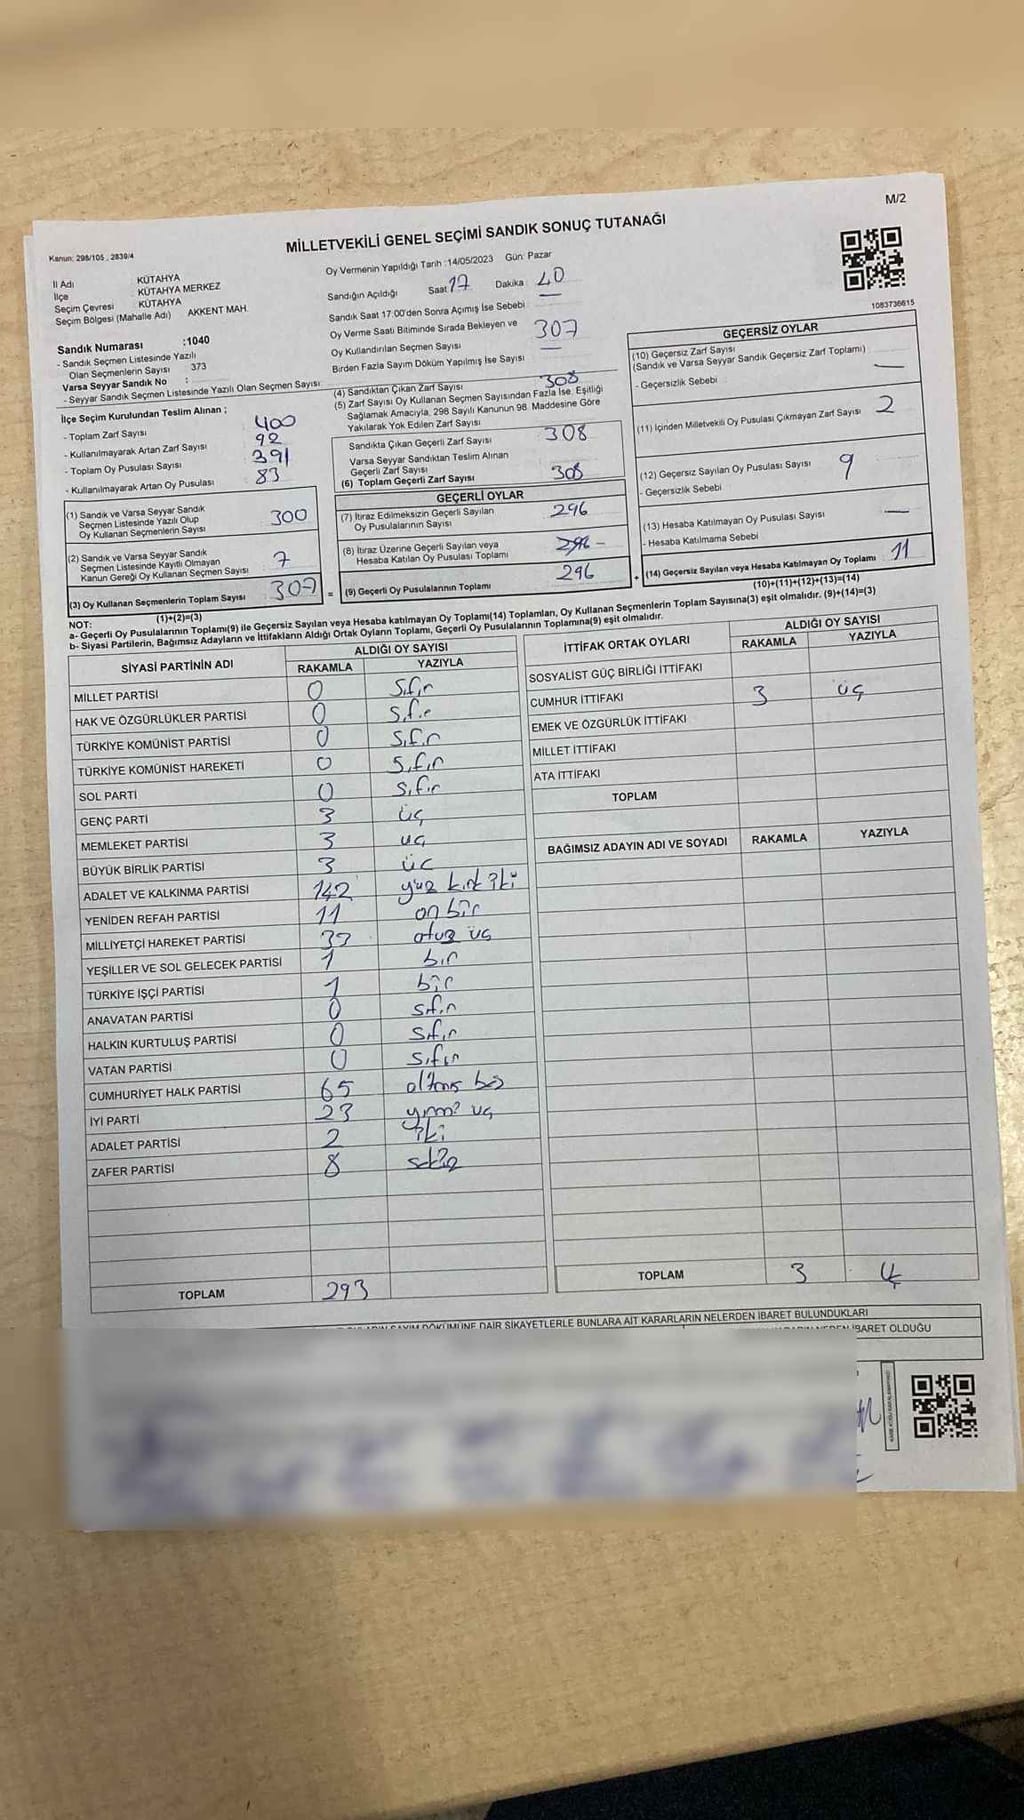 M/2
Kanun: 298/105 , 2839/4
MİLLETVEKİLİ GENEL SEÇİMİ SANDIK SONUÇ TUTANAĞI
1083736615
İl Adı KÜTAHYA
İlçe KÜTAHYA MERKEZ
Seçim Çevresi KÜTAHYA
Seçim Bölgesi (Mahalle Adı) AKKENT MAH.
Sandık Numarası :1040
- Sandık Seçmen Listesinde Yazılı
Olan Seçmenlerin Sayısı 373
Varsa Seyyar Sandık No :
- Seyyar Sandık Seçmen Listesinde Yazılı Olan Seçmen Sayısı
İlçe Seçim Kurulundan Teslim Alınan ;
- Toplam Zarf Sayısı 400
- Kullanılmayarak Artan Zarf Sayısı 92
- Toplam Oy Pusulası Sayısı 391
- Kullanılmayarak Artan Oy Pusulası 83
(1) Sandık ve Varsa Seyyar Sandık
Seçmen Listesinde Yazılı Olup
Oy Kullanan Seçmenlerin Sayısı 300
(2) Sandık ve Varsa Seyyar Sandık
Seçmen Listesinde Kayıtlı Olmayan
Kanun Gereği Oy Kullanan Seçmen Sayısı 7
(3) Oy Kullanan Seçmenlerin Toplam Sayısı 307
(1)+(2)=(3)
Oy Vermenin Yapıldığı Tarih :14/05/2023 Gün: Pazar
Sandığın Açıldığı Saat 17 Dakika 40
Sandık Saat 17:00'den Sonra Açımış İse Sebebi —
Oy Verme Saati Bitiminde Sırada Bekleyen ve
Oy Kullandırılan Seçmen Sayısı 307
Birden Fazla Sayım Döküm Yapılmış İse Sayısı —
(4) Sandıktan Çıkan Zarf Sayısı 308
(5) Zarf Sayısı Oy Kullanan Seçmen Sayısından Fazla İse, Eşitliği
Sağlamak Amacıyla, 298 Sayılı Kanunun 98. Maddesine Göre
Yakılarak Yok Edilen Zarf Sayısı
Sandıkta Çıkan Geçerli Zarf Sayısı 308
Varsa Seyyar Sandıktan Teslim Alınan
Geçerli Zarf Sayısı
(6) Toplam Geçerli Zarf Sayısı 308
GEÇERLİ OYLAR
(7) İtiraz Edilmeksizin Geçerli Sayılan
Oy Pusulalarının Sayısı 296
(8) İtiraz Üzerine Geçerli Sayılan veya
Hesaba Katılan Oy Pusulası Toplamı 296 -
= (9) Geçerli Oy Pusulalarının Toplamı 296
GEÇERSİZ OYLAR
(10) Geçersiz Zarf Sayısı
(Sandık ve Varsa Seyyar Sandık Geçersiz Zarf Toplamı) —
- Geçersizlik Sebebi
(11) İçinden Milletvekili Oy Pusulası Çıkmayan Zarf Sayısı 2
(12) Geçersiz Sayılan Oy Pusulası Sayısı 9
- Geçersizlik Sebebi
(13) Hesaba Katılmayan Oy Pusulası Sayısı —
- Hesaba Katılmama Sebebi
+ (14) Geçersiz Sayılan veya Hesaba Katılmayan Oy Toplamı 11
(10)+(11)+(12)+(13)=(14)
NOT:
a- Geçerli Oy Pusulalarının Toplamı(9) ile Geçersiz Sayılan veya Hesaba katılmayan Oy Toplamı(14) Toplamları, Oy Kullanan Seçmenlerin Toplam Sayısına(3) eşit olmalıdır. (9)+(14)=(3)
b- Siyasi Partilerin, Bağımsız Adayların ve İttifakların Aldığı Ortak Oyların Toplamı, Geçerli Oy Pusulalarının Toplamına(9) eşit olmalıdır.
SİYASİ PARTİNİN ADI ALDIĞI OY SAYISI
RAKAMLA YAZIYLA
MİLLET PARTİSİ 0 Sıfır
HAK VE ÖZGÜRLÜKLER PARTİSİ 0 Sıfır
TÜRKİYE KOMÜNİST PARTİSİ 0 Sıfır
TÜRKİYE KOMÜNİST HAREKETİ 0 Sıfır
SOL PARTİ 0 Sıfır
GENÇ PARTİ 3 üç
MEMLEKET PARTİSİ 3 üç
BÜYÜK BİRLİK PARTİSİ 3 üç
ADALET VE KALKINMA PARTİSİ 142 yüz kırk iki
YENİDEN REFAH PARTİSİ 11 on bir
MİLLİYETÇİ HAREKET PARTİSİ 33 otuz üç
YEŞİLLER VE SOL GELECEK PARTİSİ 1 bir
TÜRKİYE İŞÇİ PARTİSİ 1 bir
ANAVATAN PARTİSİ 0 sıfır
HALKIN KURTULUŞ PARTİSİ 0 Sıfır
VATAN PARTİSİ 0 Sıfır
CUMHURİYET HALK PARTİSİ 65 altmış beş
İYİ PARTİ 23 yirmi üç
ADALET PARTİSİ 2 iki
ZAFER PARTİSİ 8 sekiz
TOPLAM 293
İTTİFAK ORTAK OYLARI ALDIĞI OY SAYISI
RAKAMLA YAZIYLA
SOSYALİST GÜÇ BİRLİĞİ İTTİFAKI
CUMHUR İTTİFAKI 3 üç
EMEK VE ÖZGÜRLÜK İTTİFAKI
MİLLET İTTİFAKI
ATA İTTİFAKI
TOPLAM
BAĞIMSIZ ADAYIN ADI VE SOYADI RAKAMLA YAZIYLA
TOPLAM 3
SAYIM DÖKÜMÜNE DAİR ŞİKAYETLERLE BUNLARA AİT KARARLARIN NELERDEN İBARET BULUNDUKLARI
NEDEN İBARET OLDUĞU